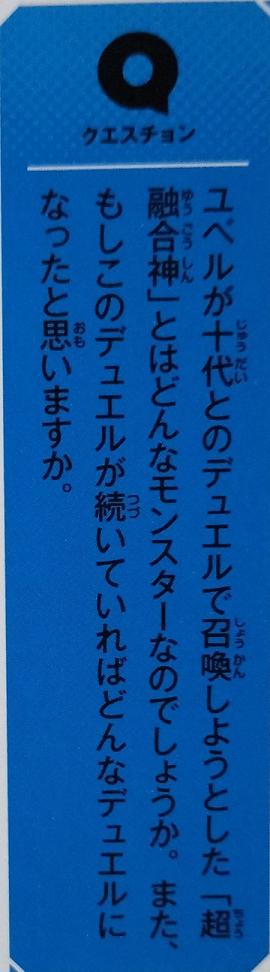 Q
クエスチョン
ユベルが十代とのデュエルで召喚しようとした「超
融合神」とはどんなモンスターなのでしょうか。また、
もしこのデュエルが続いていればどんなデュエルに
なったと思いますか。